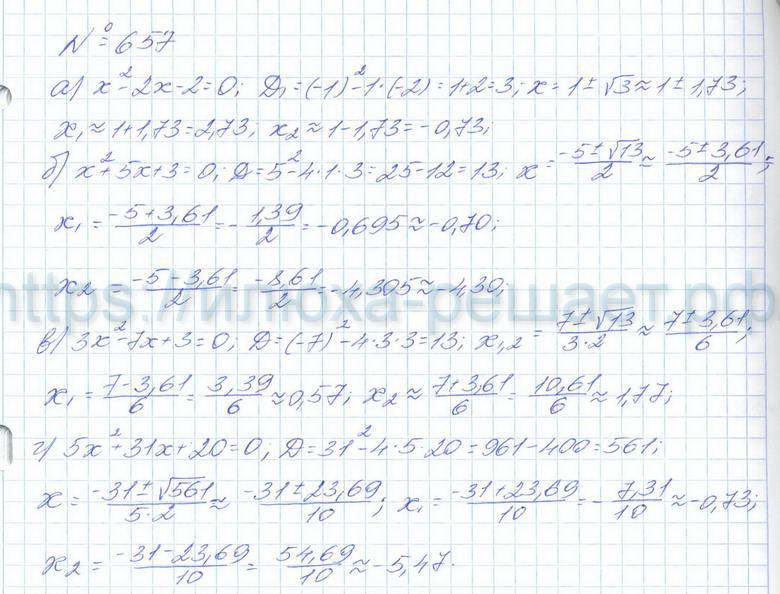 № 657
а) x² - 2x - 2 = 0; D₁ = (-1)² - 1·(-2) = 1+2 = 3; x = 1 ± √3 ≈ 1 ± 1,73;
x₁ ≈ 1+1,73 = 2,73; x₂ ≈ 1-1,73 = -0,73;
б) x² + 5x + 3 = 0; D = 5² - 4·1·3 = 25-12 = 13; x = (-5 ± √13)/2 ≈ (-5 ± 3,61)/2;
x₁ = (-5+3,61)/2 = -1,39/2 = -0,695 ≈ -0,70;
https://илюха-решает.рф
x₂ = (-5-3,61)/2 = -8,61/2 = -4,305 ≈ -4,30;
в) 3x² - 7x + 3 = 0; D = (-7)² - 4·3·3 = 13; x₁,₂ = (7 ± √13)/(3·2) ≈ (7 ± 3,61)/6;
x₁ = (7-3,61)/6 = 3,39/6 ≈ 0,57; x₂ ≈ (7+3,61)/6 = 10,61/6 ≈ 1,77;
г) 5x² + 31x + 20 = 0; D = 31² - 4·5·20 = 961-400 = 561;
x = (-31 ± √561)/(5·2) ≈ (-31 ± 23,69)/10; x₁ = (-31+23,69)/10 = -7,31/10 ≈ -0,73;
x₂ = (-31-23,69)/10 = 54,69/10 ≈ -5,47.